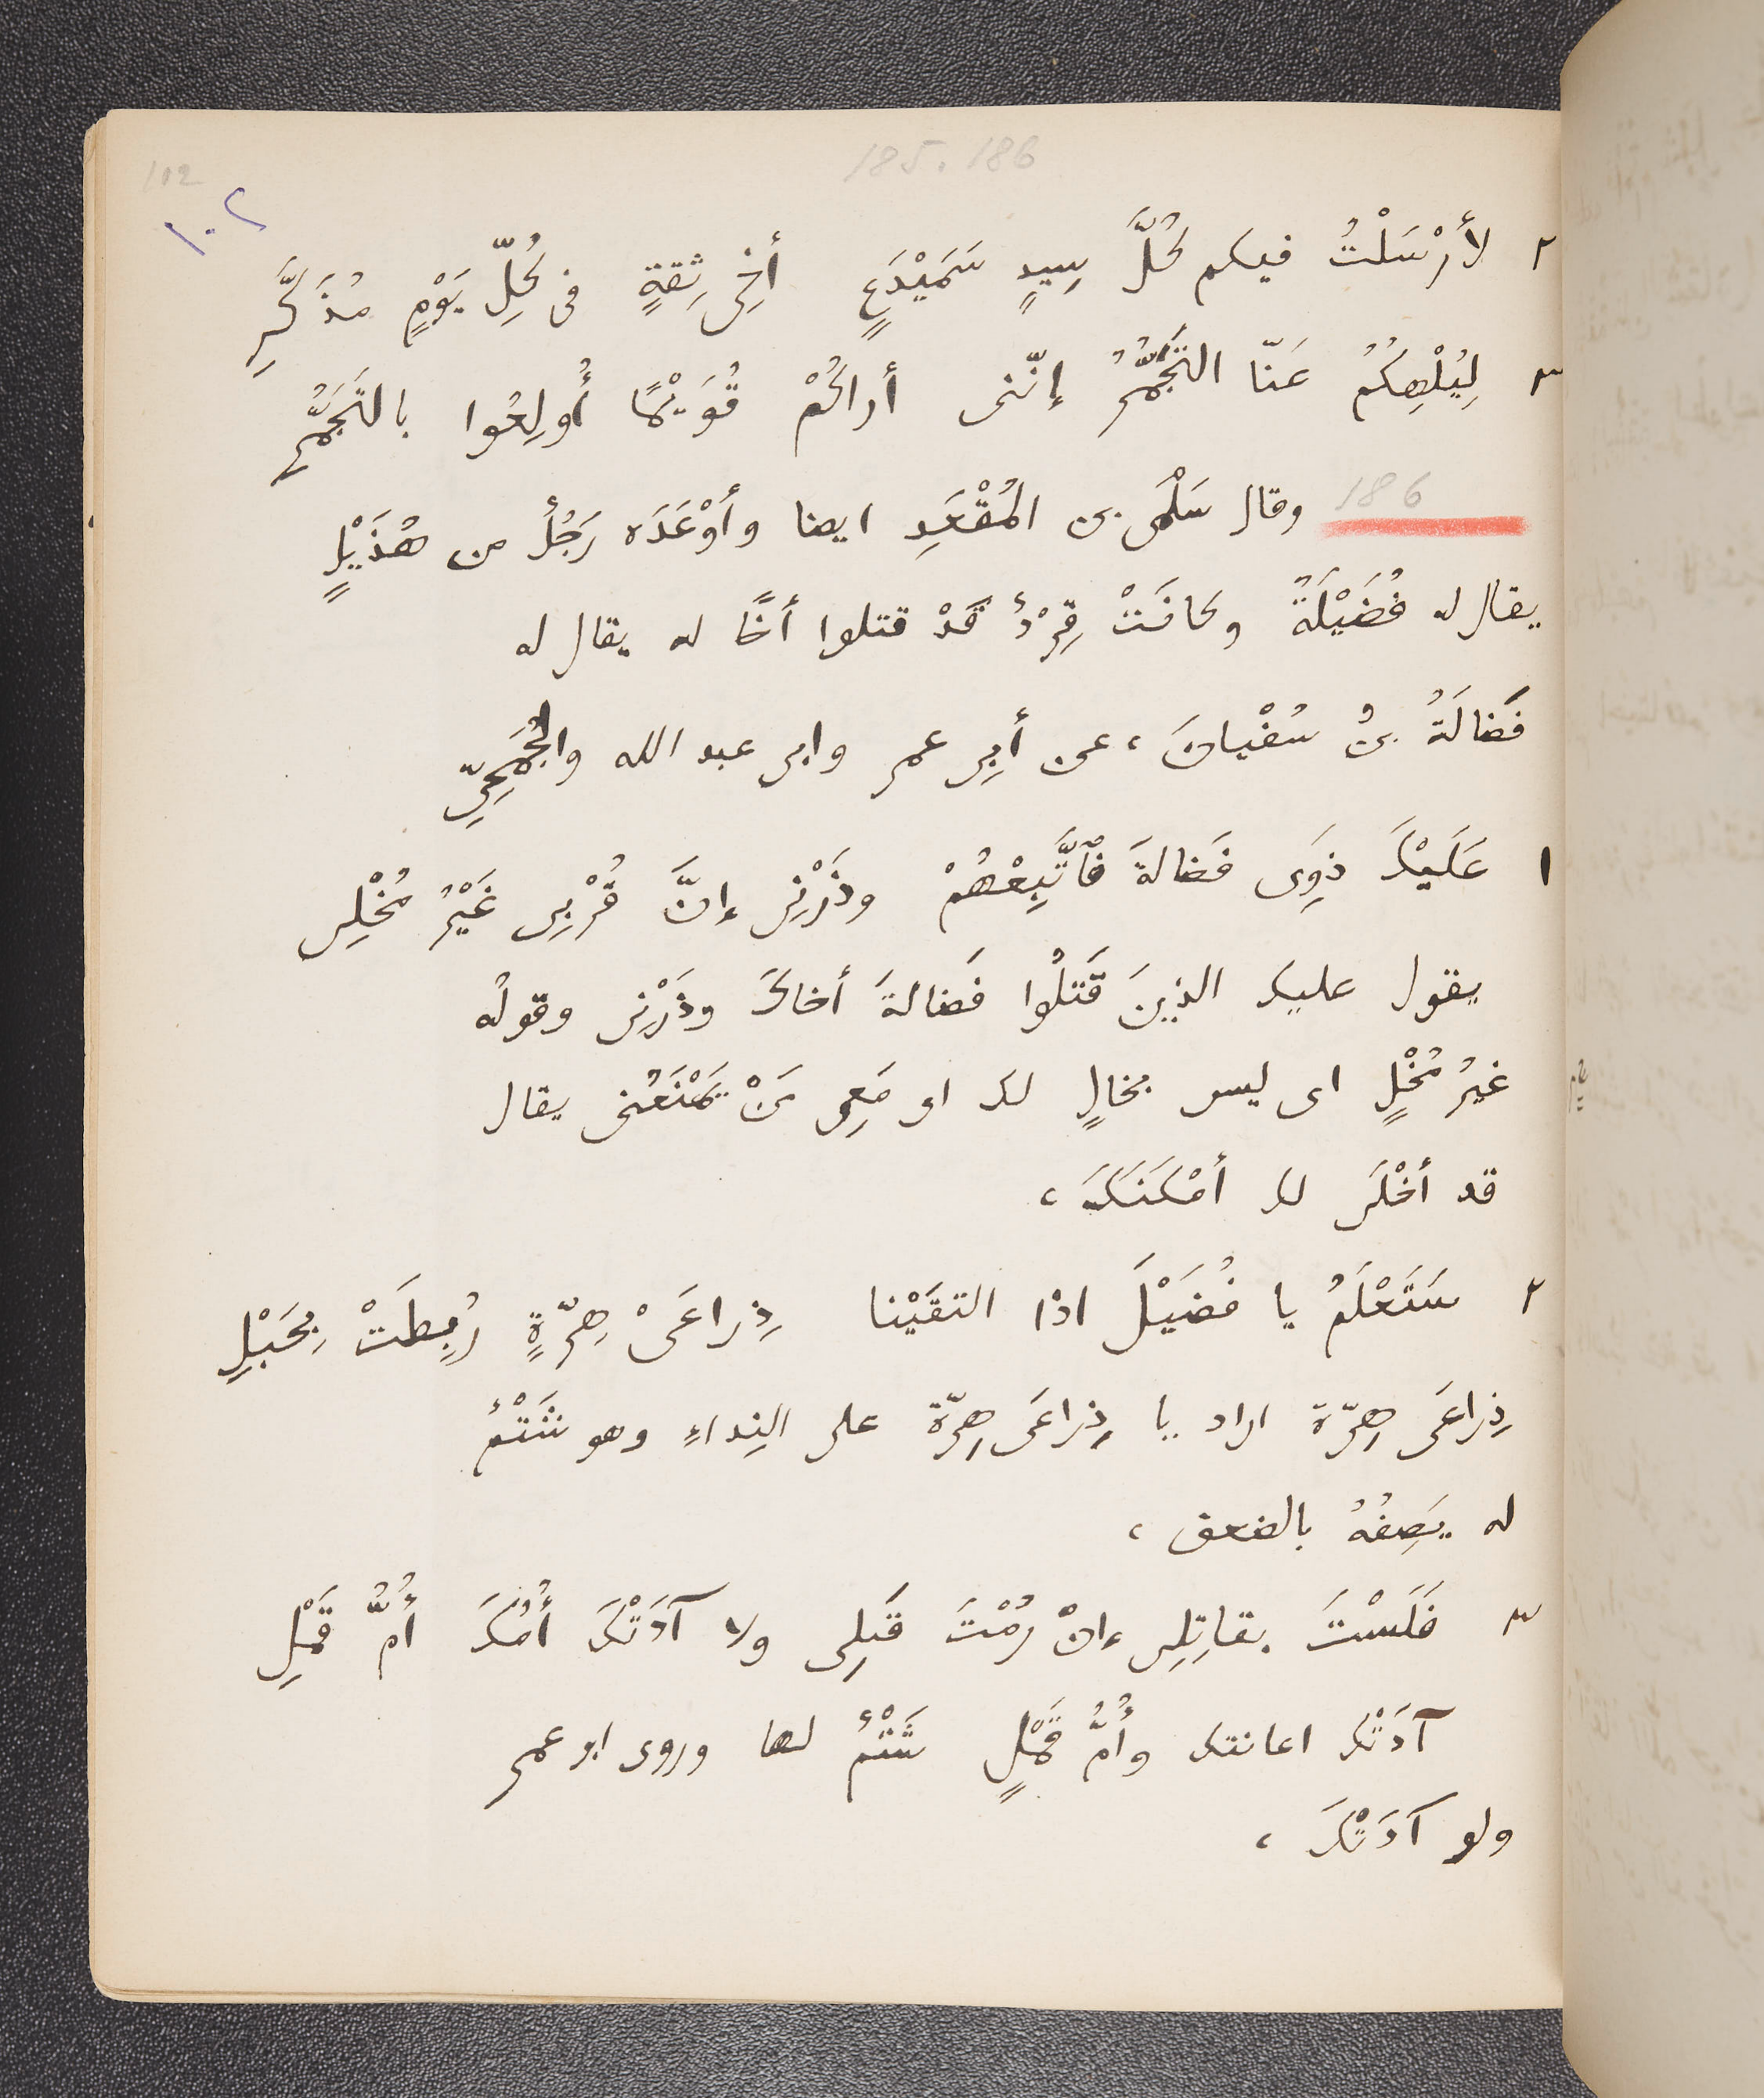 185. 186
112
١٠٢
٢ لأَرْسَلْتُ فيكم كُلَّ سِيدٍ سَمَيْدَعٍ أَخِى ثِقةٍ فى كُلِّ يَوْمٍ مُذَكَّرِ
٣ لِيُلْهِكُمُ عَنّا التَجَمُّرُ إنّنى أراكُمْ قُوَيْمًا أُولِعُوا بالتَجَمُّرِ
186 وقال سَلْمَى بن المُقْعَدِ ايضا وأَوْعَدَه رَجُلٌ من هُذَيْلٍ
يقال له فُضَيْلَةُ وكانَتْ قِرْدٌ قَدْ قتلوا أخًا له يقال له
فَضالَةُ بنُ سُفْيانَ، عن أبى عمر وابى عبد الله والجُمَحِىّ
١ عَلَيْكَ ذَوِى فَضالةَ فَٱتَّبِعْهُمْ وذَرْنِى إنَّ قُرْبِى غَيْرُ مُخْلِى
يقول عليك الذينَ قَتَلُوا فَضالةَ أخاكَ وذَرْنِى وقولُه
غيرُ مُخْلٍ اى ليس بخالٍ لك اى مَعِى مَنْ يَمْنَعُنى يقال
قد أَخْلَى لك أَمْكَنَكَ،
٢ سَتَعْلَمُ يا فُضَيْلَ اذا التقَيْنا ذِراعَىْ هِرّةٍ رُبِطَتْ بِحَبْلِ
ذِراعَى هِرّة اراد يا ذِراعَى هِرّة على النِداءِ وهو شَتْمٌ
له يَصِفُهُ بالضعف،
٣ فَلَسْتَ بقاتِلِى إنْ رُمْتَ قَتلِى ولا آدَتْكَ أُمُّكَ أُمُّ قَمْلِ
آدَتْك اعانتك وأُمُّ قَمْلٍ شَتْمٌ لها وروى ابو عمر
ولو آدَتْكَ،